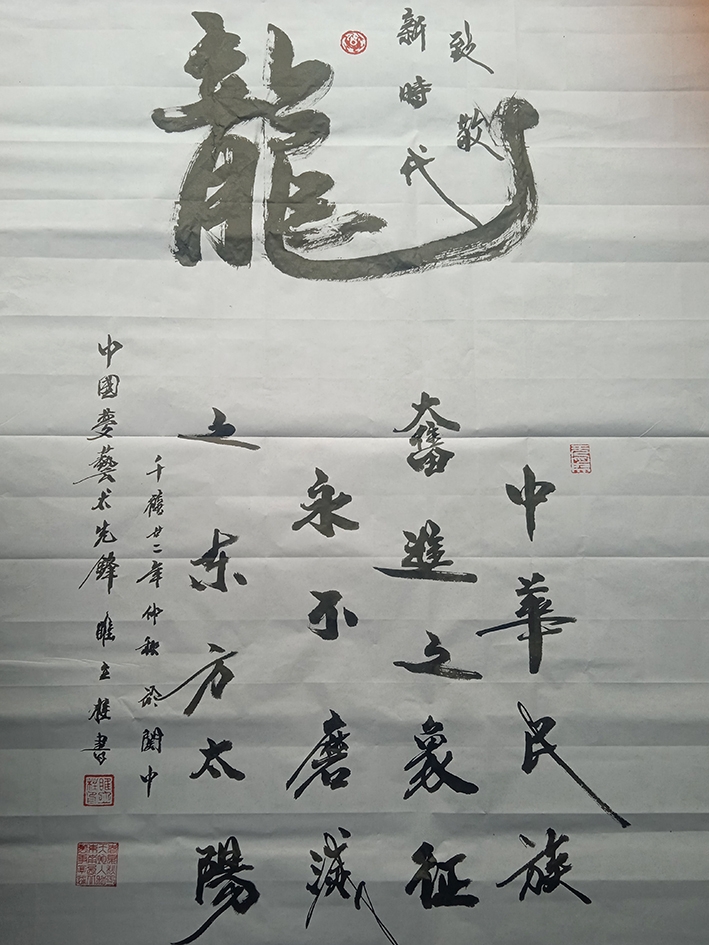 致敬
新時代
龍
中華民族
奮進之象征
永不磨滅
之东方太陽
千禧廿二年仲秋於関中
中國夢藝术先鋒 睢立書